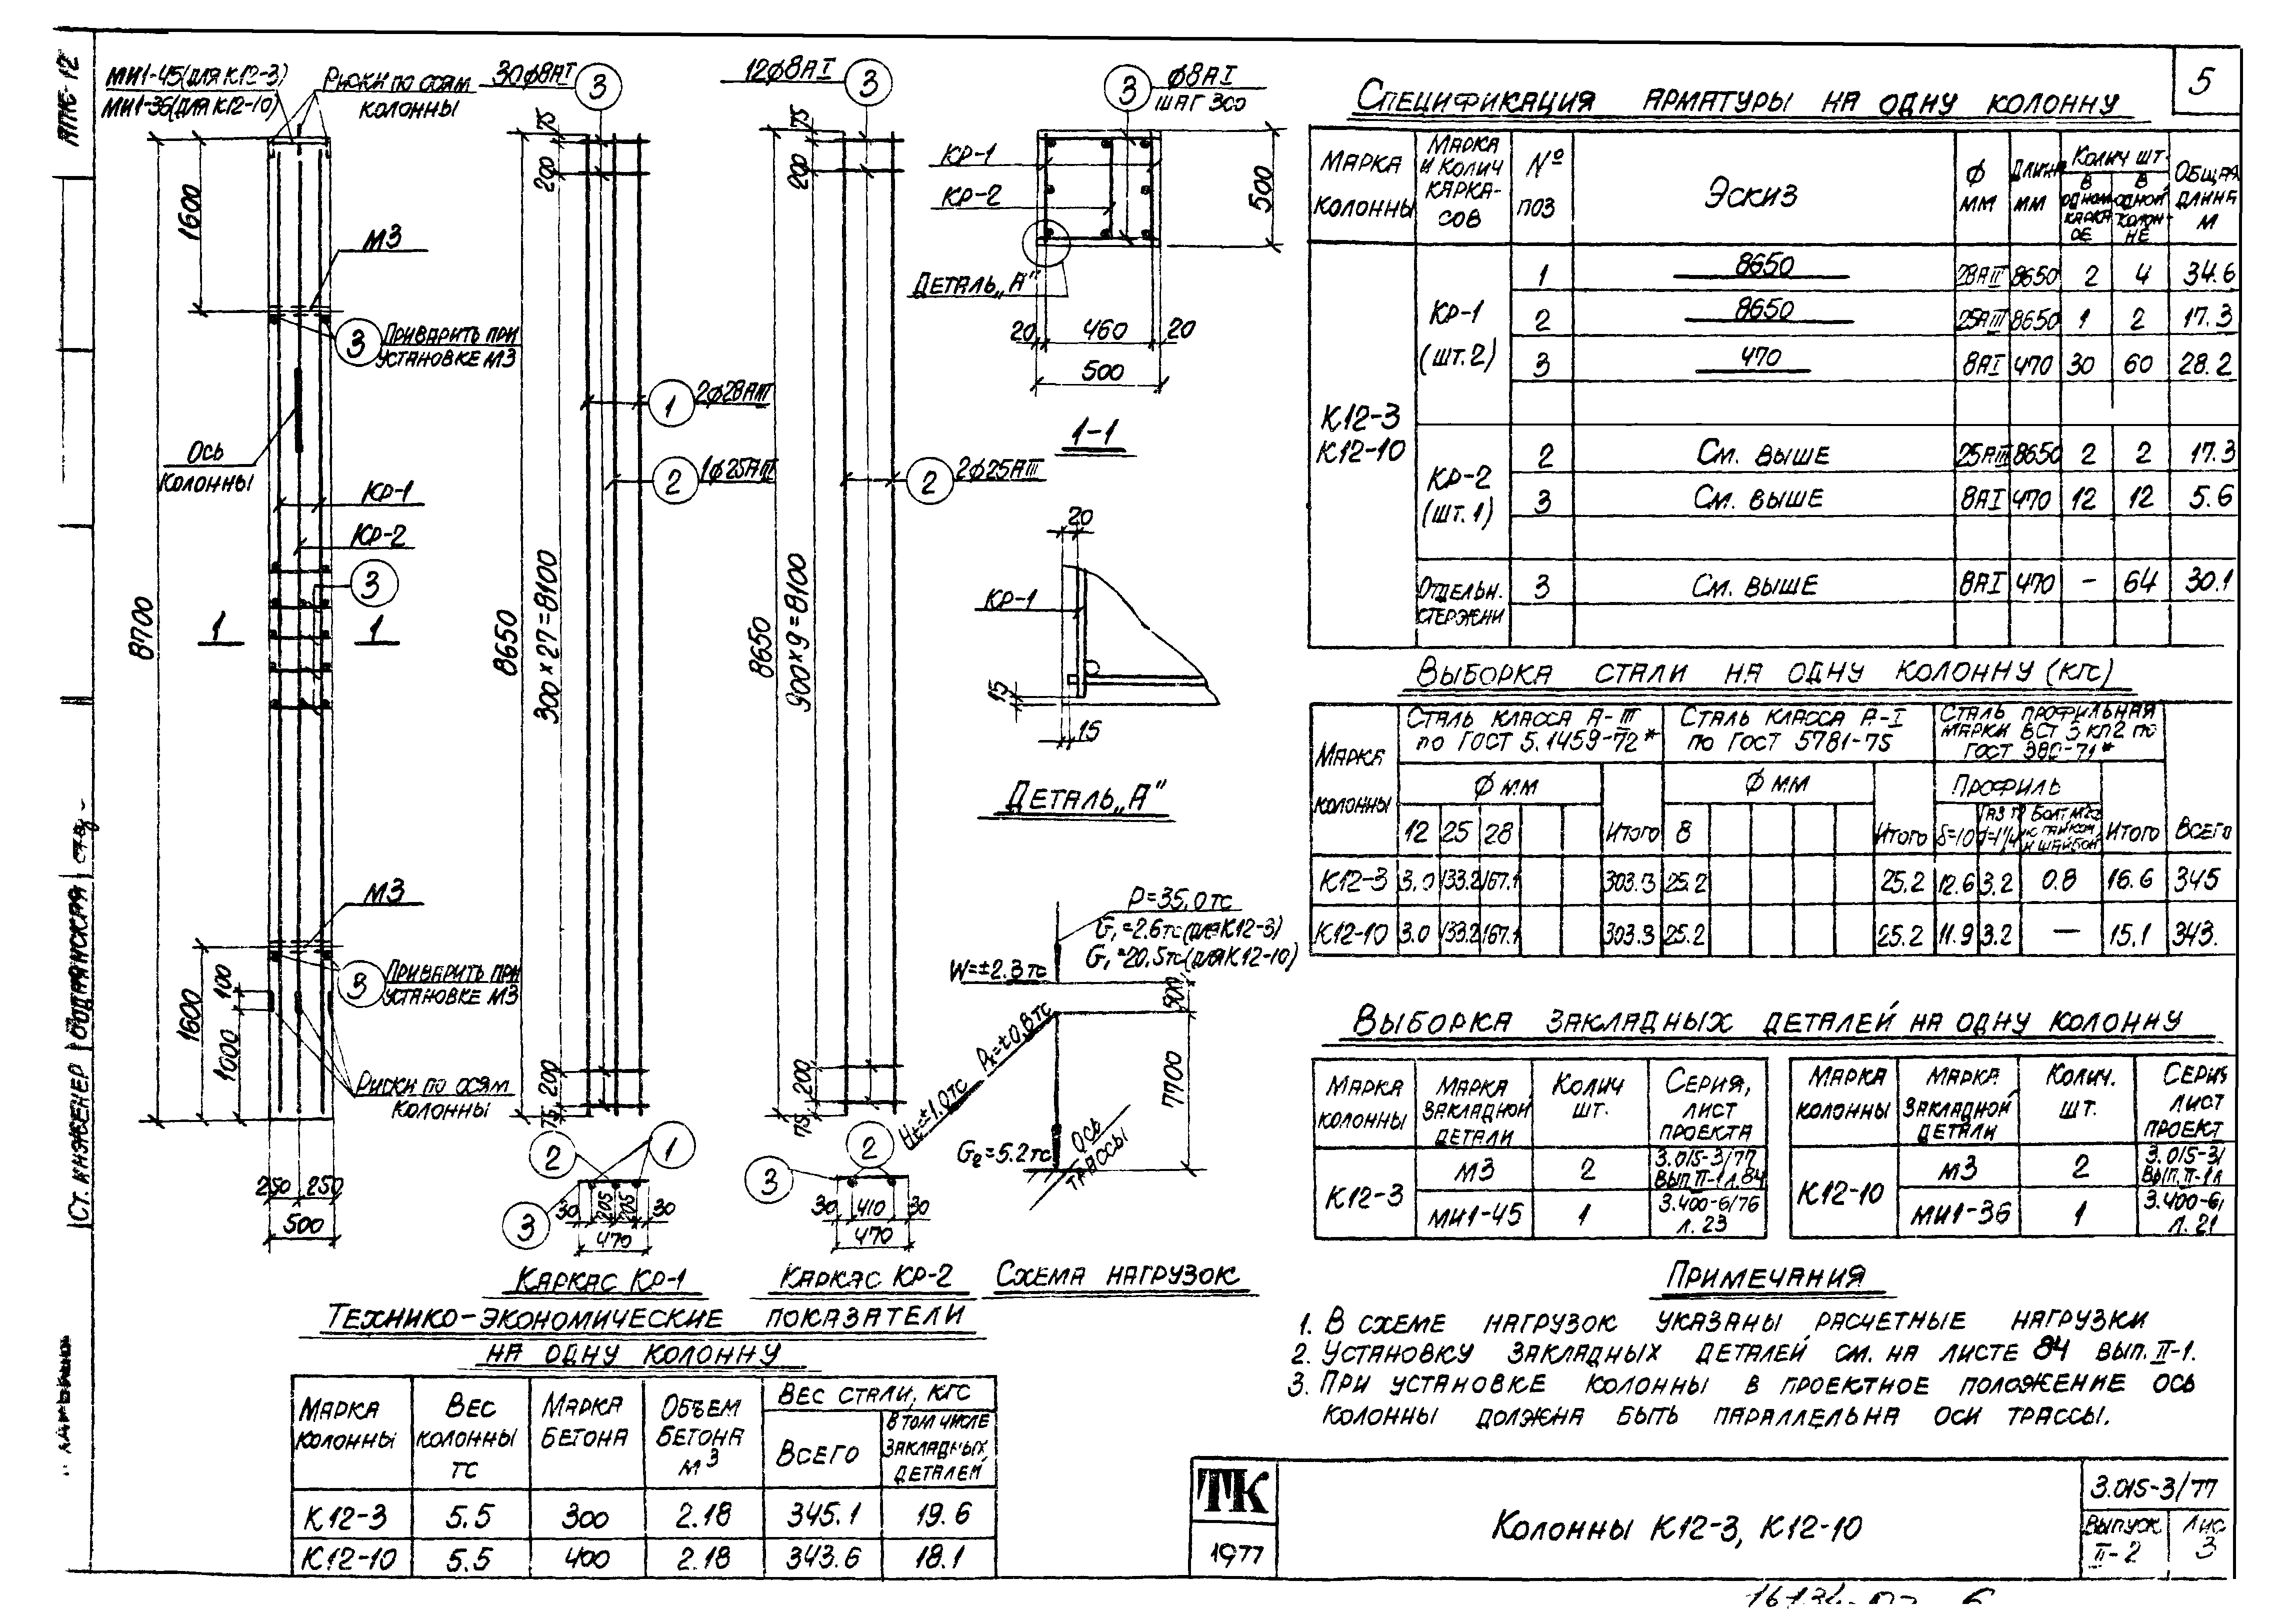 5
МИ1-45(для К12-3)
МИ1-36(для К12-10)
Риски по осям
колонны
30⌀8АI
3
12⌀8АI
3
3
⌀8АI
шаг 300
75
200
75
200
1600
М3
3
Приварить при
установке М3
Ось
колонны
КР-1
КР-2
3
1
1
8700
8650
300×27=8100
8650
900×9=8100
1
2⌀28АIII
2
1⌀25АIII
2
2⌀25АIII
М3
3
Приварить при
установке М3
100
1600
1000
Риски по осям
колонны
250
250
500
200
75
200
75
2
1
3
30
205
205
30
470
Каркас КР-1
2
3
30
410
30
470
Каркас КР-2
КР-1
КР-2
500
Деталь „А"
20
460
20
500
1-1
20
КР-1
15
15
Деталь „А"
P=35,0тс
G₁=2.6тс(для К12-3)
G₁=20,5тс(для К12-10)
W=±2.3тс
900
7700
G₂=5.2тс
Ось
трассы
Схема нагрузок
Спецификация арматуры на одну колонну
Марка колонны
Марка и колич каркасов
№ поз
Эскиз
⌀ мм
Длина мм
Колич шт.
в одном каркасе
в одной колонне
Общая длина м
К12-3
К12-10
КР-1
(шт.2)
1 8650 28АIII 8650 2 4 34.6
2 8650 25АIII 8650 1 2 17.3
3 470 8АI 470 30 60 28.2
КР-2
(шт.1)
2 См. выше 25АIII 8650 2 2 17.3
3 См. выше 8АI 470 12 12 5.6
Отдельн.
стержни
3 См. выше 8АI 470 – 64 30.1
Выборка стали на одну колонну (кгс)
Марка колонны
Сталь класса А-III
по ГОСТ 5.1459-72*
Сталь класса А-I
по ГОСТ 5781-75
Сталь профильная
марки ВСт 3 кп2 по
ГОСТ 380-71*
⌀ мм
⌀ мм
Профиль
12 25 28 Итого 8 Итого δ=10 Итого Всего
К12-3 3.0 133.2 167.1 303.3 25.2 25.2 12.6 3.2 0.8 16.6 345
К12-10 3.0 133.2 167.1 303.3 25.2 25.2 11.9 3.2 – 15.1 343.
Выборка закладных деталей на одну колонну
Марка колонны
Марка закладной детали
Колич шт.
Серия, лист проекта
К12-3
М3 2 3.015-3/77 вып.II-1 л.84
МИ1-45 1 3.400-6/76 л.23
Марка колонны
Марка закладной детали
Колич. шт.
Серия лист проект
К12-10
М3 2 3.015-3/ вып.II-1 л
МИ1-36 1 3.400-6/ л.21
Примечания
1. В схеме нагрузок указаны расчетные нагрузки
2. Установку закладных деталей см. на листе 84 вып. II-1.
3. При установке колонны в проектное положение ось
колонны должна быть параллельна оси трассы.
Технико-экономические показатели
на одну колонну
Марка колонны
Вес колонны тс
Марка бетона
Объем бетона м3
Вес стали, кгс
Всего
В том числе закладных деталей
К12-3 5.5 300 2.18 345.1 19.6
К12-10 5.5 400 2.18 343.6 18.1
ТК
1977
Колонны К12-3, К12-10
3.015-3/77
Выпуск
II-2
Лис
3
Ст. инженер